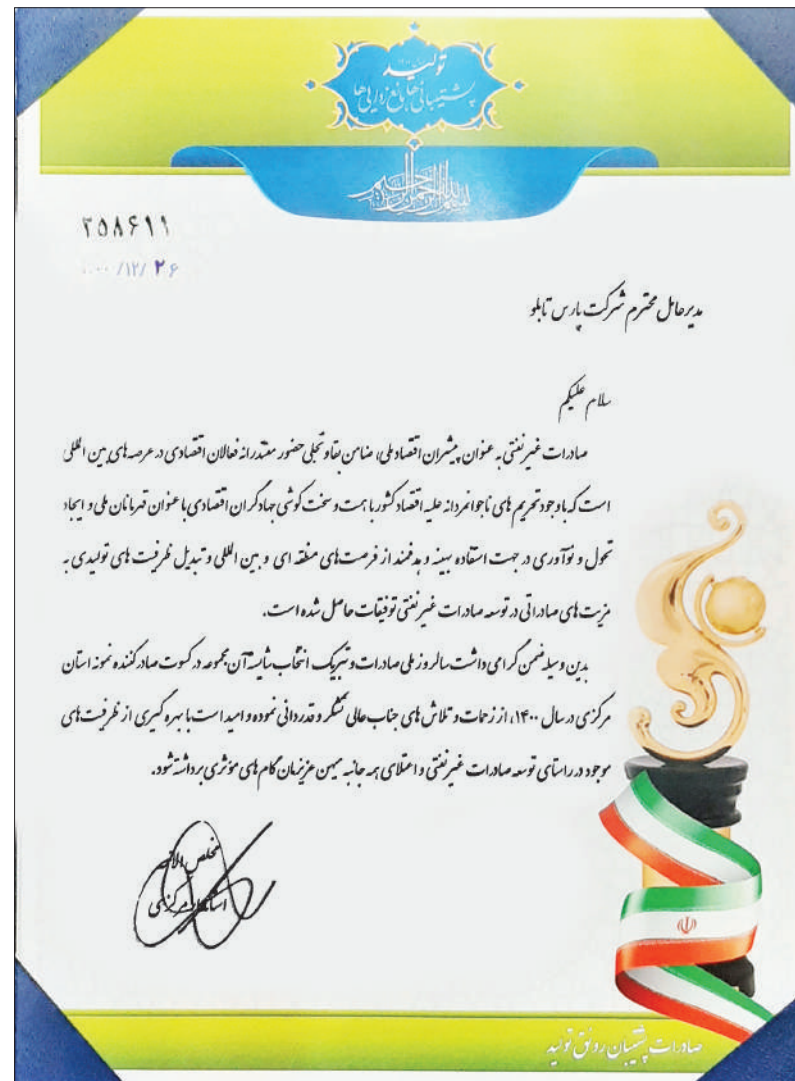 تولید
پشتیبانی‌ها، مانع زدایی‌ها
بسم الله الرحمن الرحیم
۲۵۸۶۱۱
۱۴۰۰/۱۲/۲۶
مدیرعامل محترم شرکت پارس تابلو
سلام علیکم
صادرات غیرنفتی به عنوان پیشران اقتصاد ملی، ضامن بقا و تجلی حضور مقتدرانه فعالان اقتصادی در عرصه های بین المللی
است که باوجود تحریم های ناجوانمردانه علیه اقتصاد کشور با همت و سخت کوشی جهادگران اقتصادی با عنوان قهرمانان ملی و ایجاد
تحول و نوآوری در جهت استفاده بهینه و هدفمند از فرصت های منطقه ای و بین المللی و تبدیل ظرفیت های تولیدی به
مزیت های صادراتی در توسعه صادرات غیرنفتی توفیقات حاصل شده است.
بدین وسیله ضمن گرامی داشت سالروز ملی صادرات و تبریک انتخاب شایسته آن مجموعه در کسوت صادرکننده نمونه استان
مرکزی در سال ۱۴۰۰، از زحمات و تلاش های جناب عالی تشکر و قدردانی نموده و امید است با بهره گیری از ظرفیت های
موجود در راستای توسعه صادرات غیرنفتی و اعتلای همه جانبه میهن عزیزمان گام های مؤثری برداشته شود.
مخلص
استاندار مرکزی
صادرات پشتیبان رونق تولید